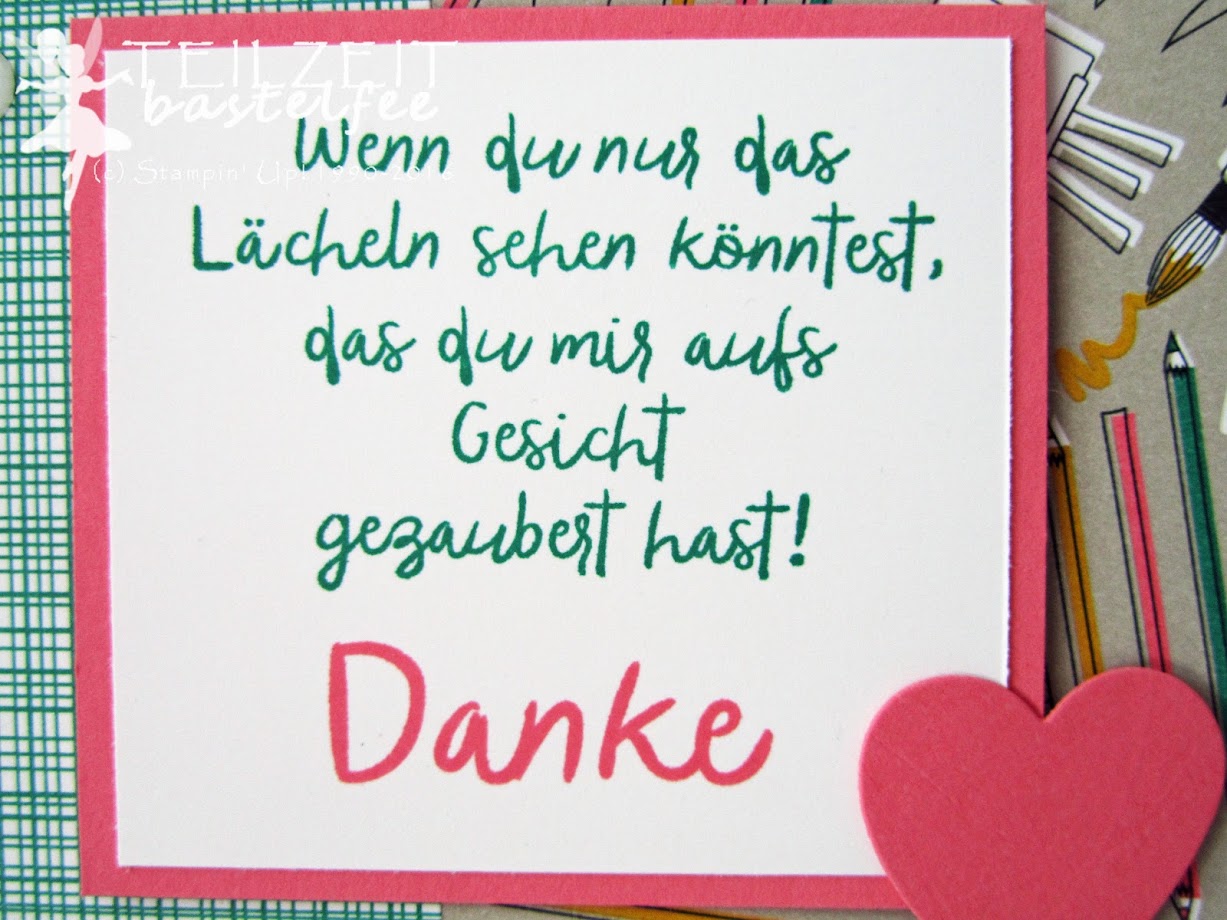 TEILZEIT
bastelfee
(c) Stampin' Up! 1990-2016
Wenn du nur das
Lächeln sehen könntest,
das du mir aufs
Gesicht
gezaubert hast!
Danke